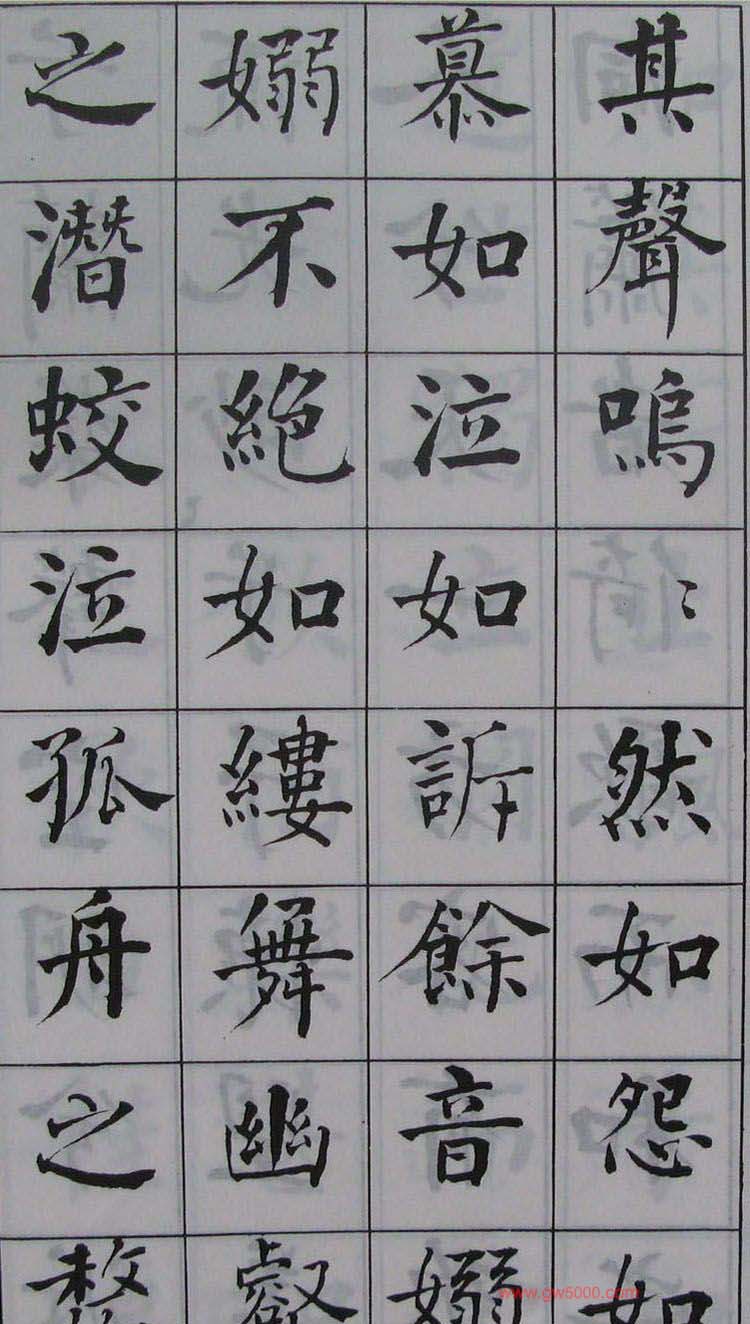 其聲嗚〻然如怨如
慕如泣如訴餘音嫋
嫋不絶如縷舞幽壑
之潛蛟泣孤舟之嫠
www.gw5000.com